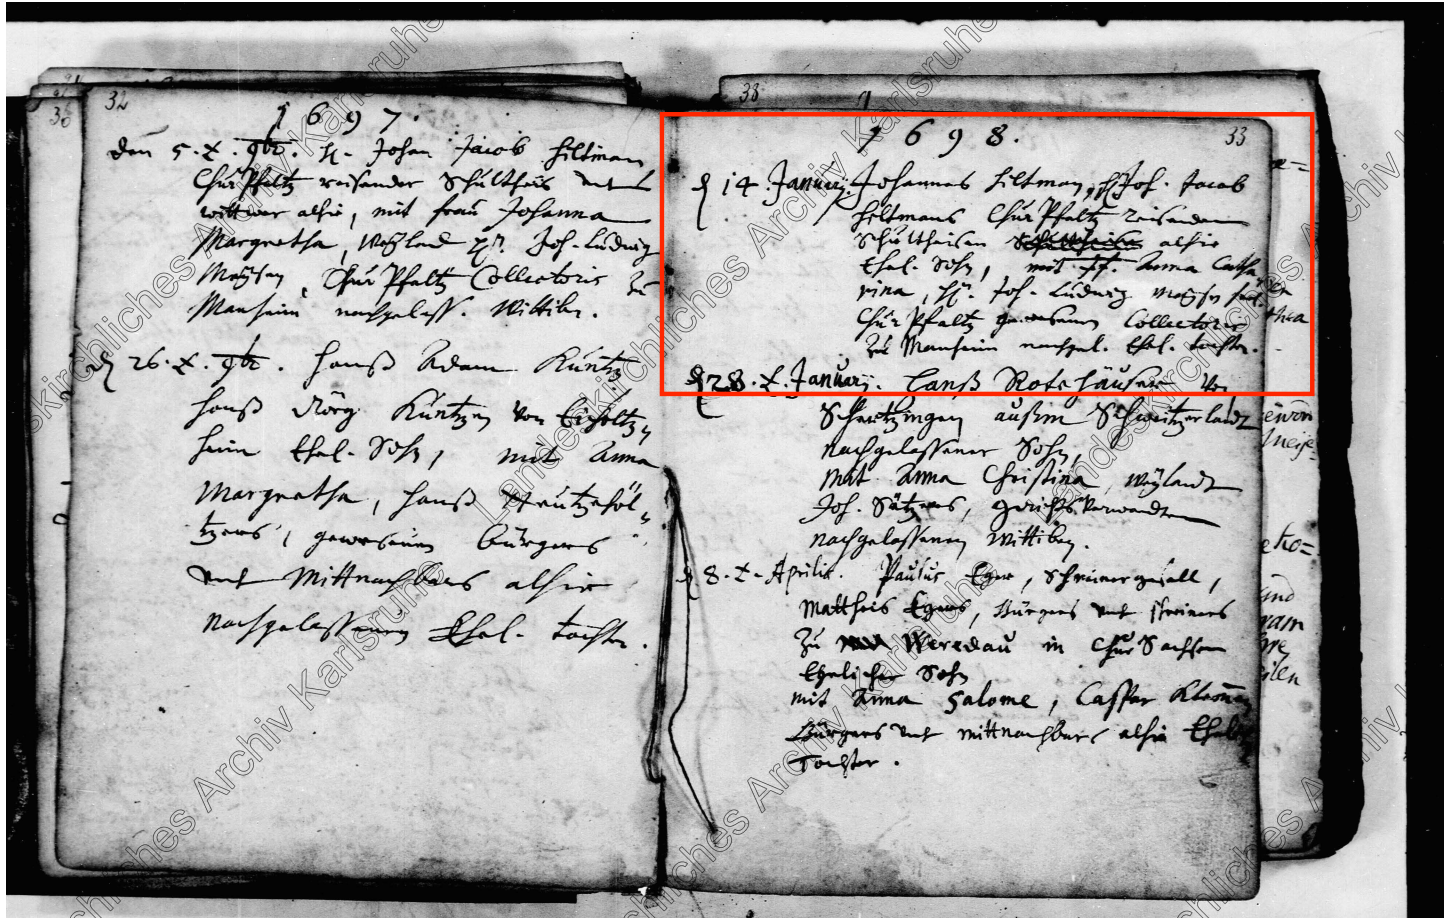 32
1 6 9 7.
den 5. t. 9br. H. Johan Jacob Hiltman
ChurPfaltz reisender Schultheis und
wittwer alhie, mit frau Johanna
Margretha, Weyland Hn. Joh. Ludwig
ChurPfaltz Collectoris zu
Manheim nachgelass. Wittibe.
26. t. 9br. Hanß Adam Kuntz
Hanß Jörg Kuntzen von
heim Ehel. Sohn, mit Anna
Margretha, Hanß
gewesenen Bürgers
und Mittnachbars alhie
nachgelassenen Ehel. tochter.
38
33
1 6 9 8.
d 14. January. Johannes Hiltman, H. Joh. Jacob
Hiltmans ChurPfaltz reisenden
Schultheisen alhie
Ehel. Sohn, mit Anna Catha
rina, Hn. Joh. Ludwig
ChurPfaltz gewesenen Collectoris
zu Manheim nachgel. Ehel. tochter.
d 28. t. January. Hanß Rotshäuser von
Schertzingen außm Schweitzerlandt
nachgelassener Sohn,
mit Anna Christina, weylandt
Joh. gerichtsverwandten
nachgelassenen Wittiben.
d 8. t. Aprilis. Paulus Eger, Schreinergesell,
Mattheis Egers, Bürgers und schreiners
zu Werdau in ChurSachsen
Ehelicher Sohn
mit Anna Salome, Caspar
Bürgers und mittnachbars alhie Ehel.
Tochter.
Landeskirchliches Archiv Karlsruhe